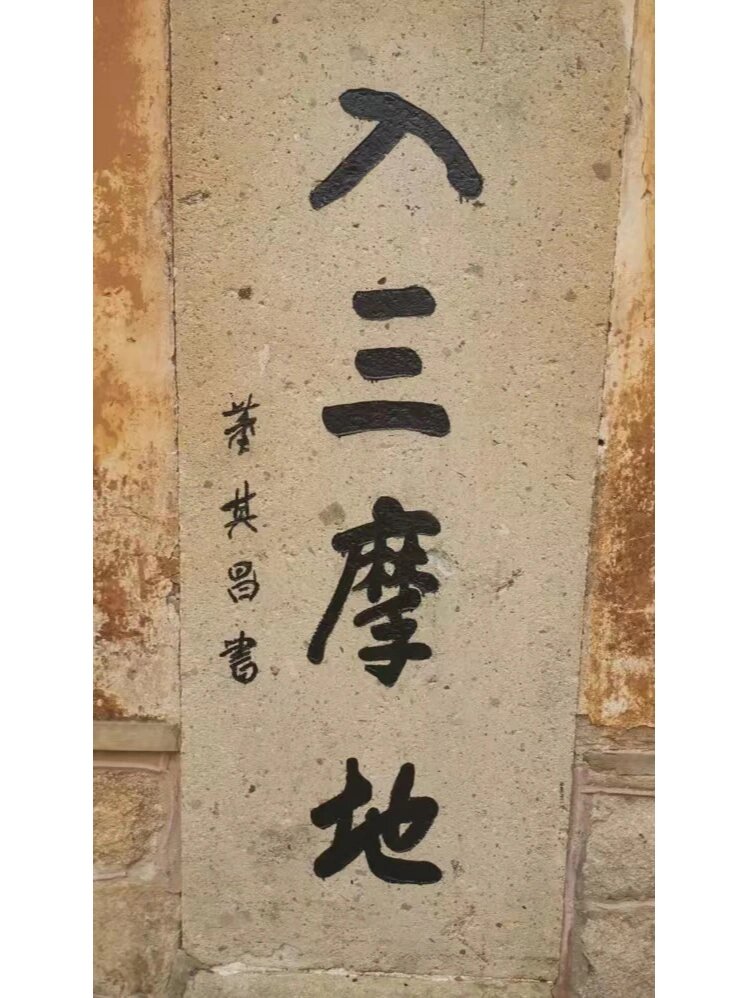 入三摩地
董其昌書